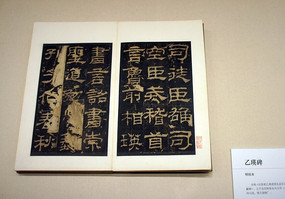 司徒臣雄司
空臣戒稽首
言魯前相瑛
書言詔書崇
聖道勉藝
孔子作春
乙瑛碑